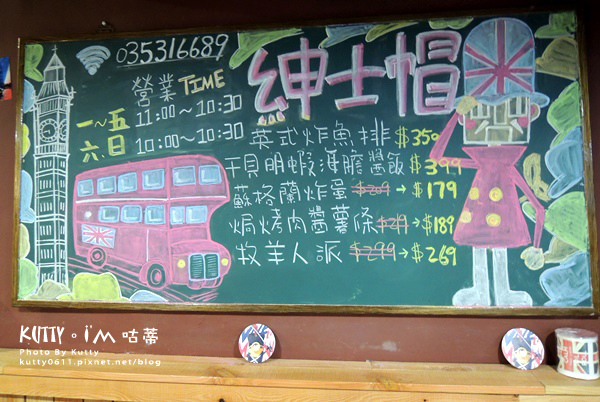 035316689
紳士帽
營業TIME
一~五 11:00~10:30
六.日 10:00~10:30
英式炸魚排 $350
干貝明蝦海膽醬飯 $399
蘇格蘭炸蛋 → $179
焗烤肉醬薯條 → $189
牧羊人派 $299 → $269
KUTTY。i'M 咕蒂
Photo By Kutty
kutty0611.pixnet.net/blog